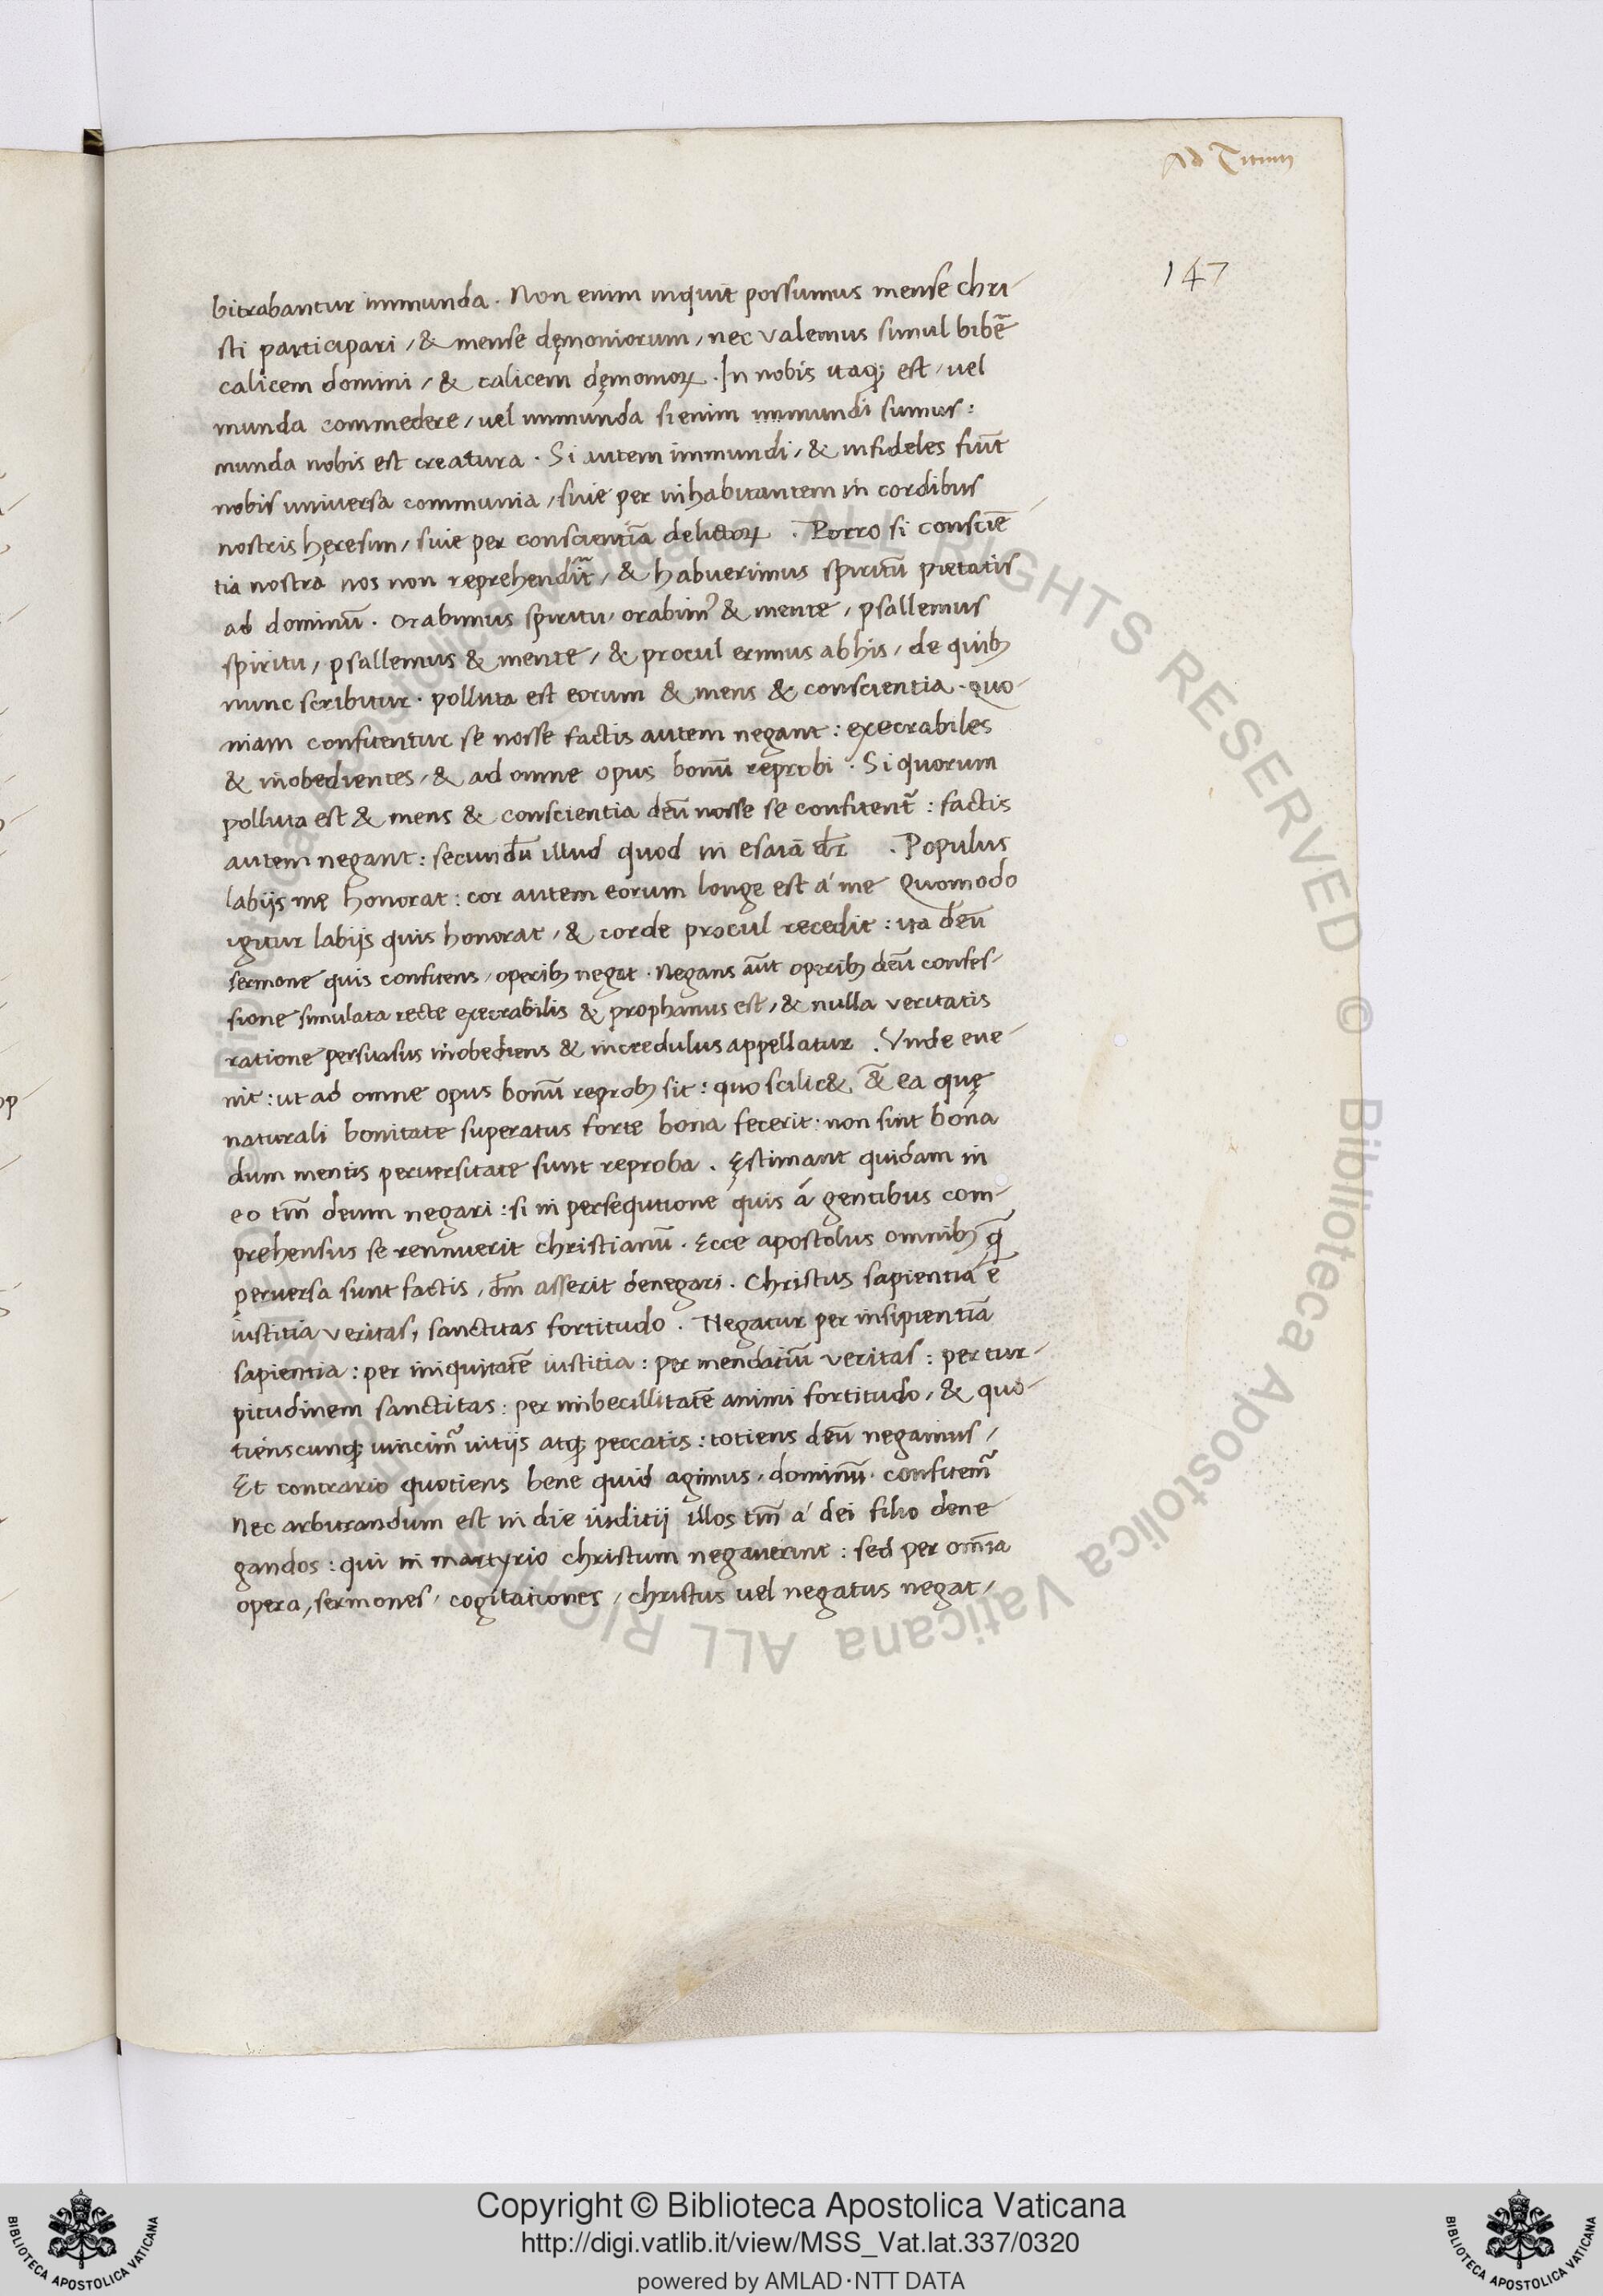 Ad Titum
147
bitrabantur immunda. Non enim inquit possumus mense chri-
sti participari / & mense dęmoniorum / nec valemus simul bibẽ
calicem domini / & calicem dęmonioꝝ. In nobis itaqꝫ est / vel
munda commedere / vel immunda si enim immundi sumus:
munda nobis est creatura. Si autem immundi / & infideles fiũt
nobis universa communia / siue per inhabitantem in cordibus
nostris hęresim / siue per conscientiã delictoꝝ. Porro si consciẽ-
tia nostra nos non reprehendit̃ / & habuerimus spiritũ pietatis
ad dominũ. orabimus spiritu / orabimꝰ & mente / psallemus
spiritu / psallemus & mente / & procul erimus ab his / de quibꝫ
nunc scribitur. polluta est eorum & mens & conscientia. quo-
niam confitentur se nosse factis autem negant: execrabiles
& inobedientes / & ad omne opus bonũ reprobi. Si quorum
polluta est & mens & conscientia deũ nosse se confitent̃: factis
autem negant: secundũ illud quod in esaiã dr̃. Populus
labijs mę honorat: cor autem eorum longe est á me Quomodo
igitur labijs quis honorat / & corde procul recedit: ita deũ
sermone quis confitens / operibꝫ negat. Negans aũt operibꝫ deũ confes-
sione simulata recte execrabilis & prophanus est / & nulla veritatis
ratione persuasus inobediens & incredulus appellatur. Unde eue-
nit: ut ad omne opus bonũ reprobꝫ sit: quo scilic& &̃ ea quę
naturali bonitate superatus forte bona fecerit: non sint bona
dum mentis perversitate sunt reproba. Ęstimant quidam in
eo tm̃ deum negari: si in persequtione quis á gentibus com-
prehensus se rennuerit christianũ. Ecce apostolus omnibꝫ q̃
perversa sunt factis / dm̃ asserit denegari. Christus sapientia ẽ
iustitia veritas, sanctitas fortitudo. Negatur per insipientiã
sapientia: per iniquitatẽ iustitia: per mendatiũ veritas: per tur-
pitudinem sanctitas: per imbecillitatẽ animi fortitudo / & quo-
tienscunqꝫ vincim̃ vitijs atqꝫ peccatis: totiens deũ negamus /
Et contrario quotiens bene quid agimus / dominũ confitem̃
Nec arbitrandum est in die iuditij illos tm̃ á dei filio dene-
gandos: qui in martyrio christum negaverint: sed per om̃ia
opera, sermones / cogitationes / christus vel negatus negat /
Copyright © Biblioteca Apostolica Vaticana
http://digi.vatlib.it/view/MSS_Vat.lat.337/0320
powered by AMLAD·NTT DATA
BIBLIOTECA APOSTOLICA VATICANA
BIBLIOTECA APOSTOLICA VATICANA